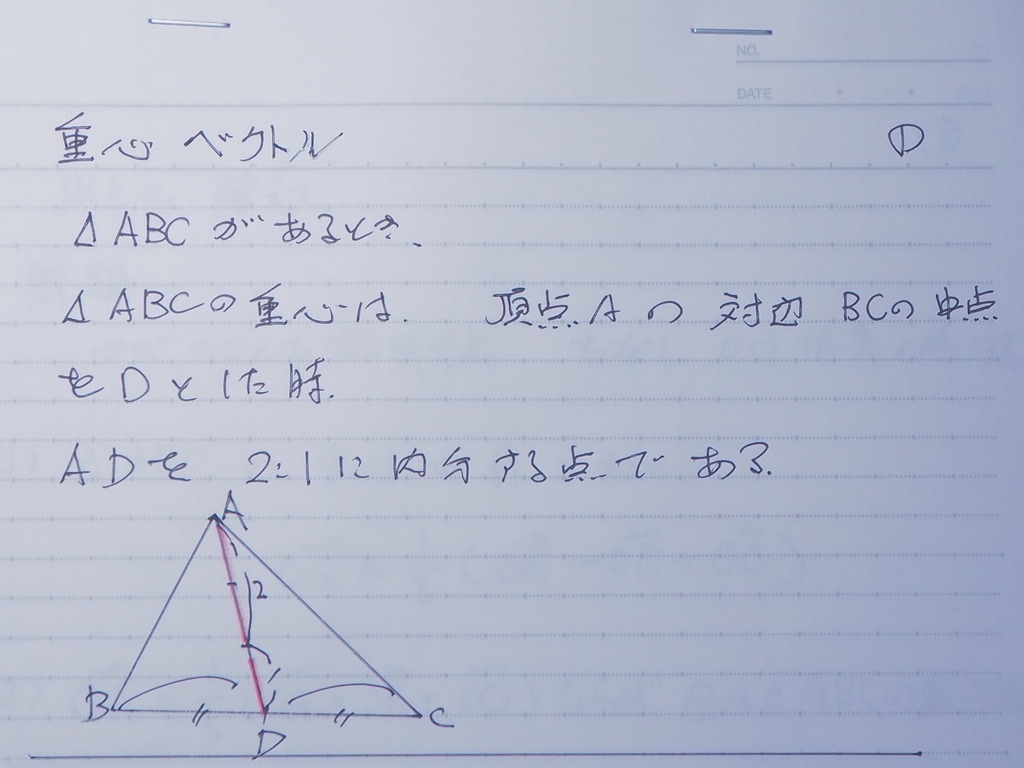 NO.
DATE
重心 ベクトル ①
△ABCがあるとき、
△ABCの重心は、 頂点Aの 対辺 BCの中点
をDとした時、
ADを 2:1に内分する点である。
A
2
1
B
C
D